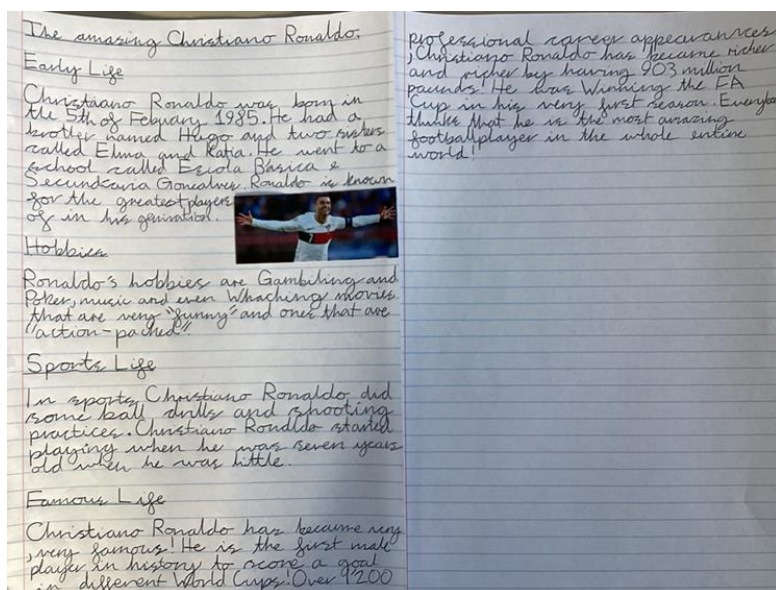 The amazing Christiano Ronaldo.
Early Life
Christaano Ronaldo was born in
the 5th of Febuary 1985. He had a
brother named Hugo and two sisters
called Elma and Katia. He went to a
school called Escola Básica e
Secundaria Goncalves. Ronaldo is known
for the greatest players
of in his generation.
Hobbies
Ronaldo's hobbies are Gambiling and
Poker, music and even Whaching movies
that are very "funny" and ones that are
"action-packed".
Sports Life
In sports Christiano Ronaldo did
some ball drills and shooting
practices. Christiano Ronaldo started
playing when he was seven years
old when he was little.
Famous Life
Christiano Ronaldo has became very
, very famous! He is the first male
player in history to score a goal
in different World Cups! Over 1200
professional career appearances
, Christiano Ronaldo has became richer
and richer by having 903 million
pounds! He was Winning the FA
Cup in his very first season. Everybo
thinks that he is the most amazing
footballplayer in the whole entire
world!